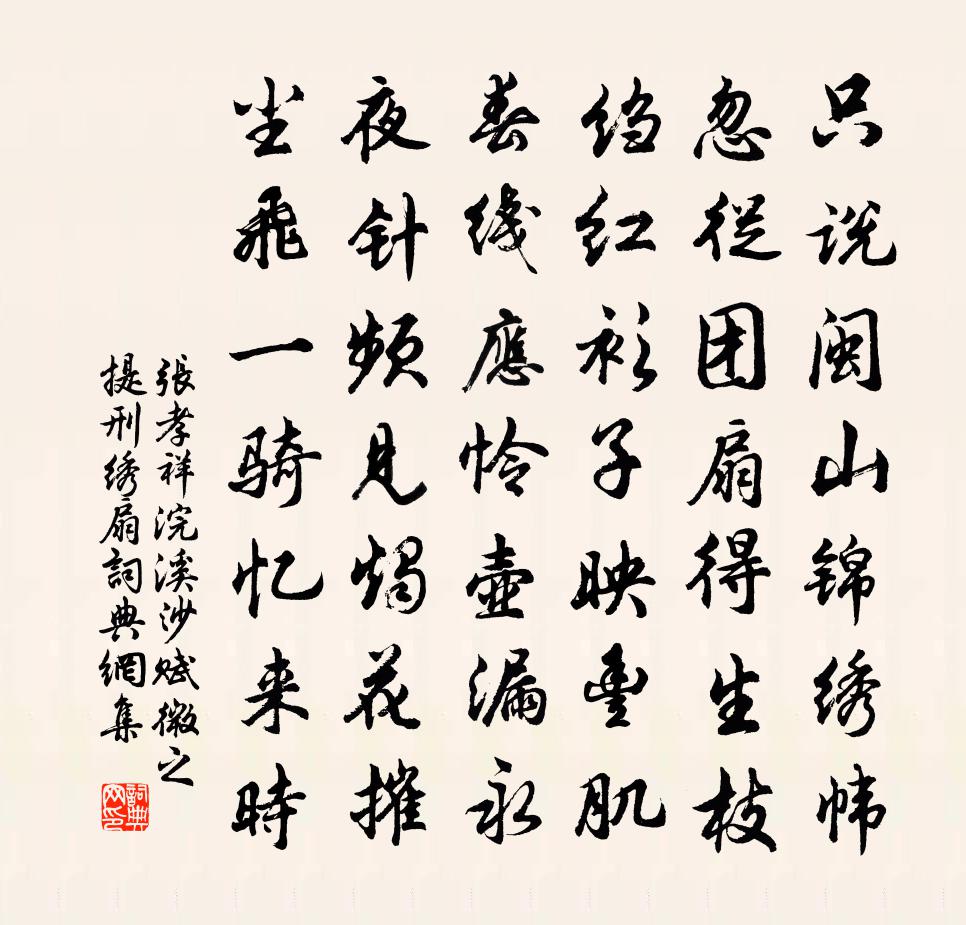 只说闽山锦绣帏
忽從团扇得生枝
绉红衫子映豊肌
春线應怜壶漏永
夜针频見烛花摧
尘飛一骑忆来時
張孝祥浣溪沙赋微之
提刑绣扇詞典網集
詞典网印